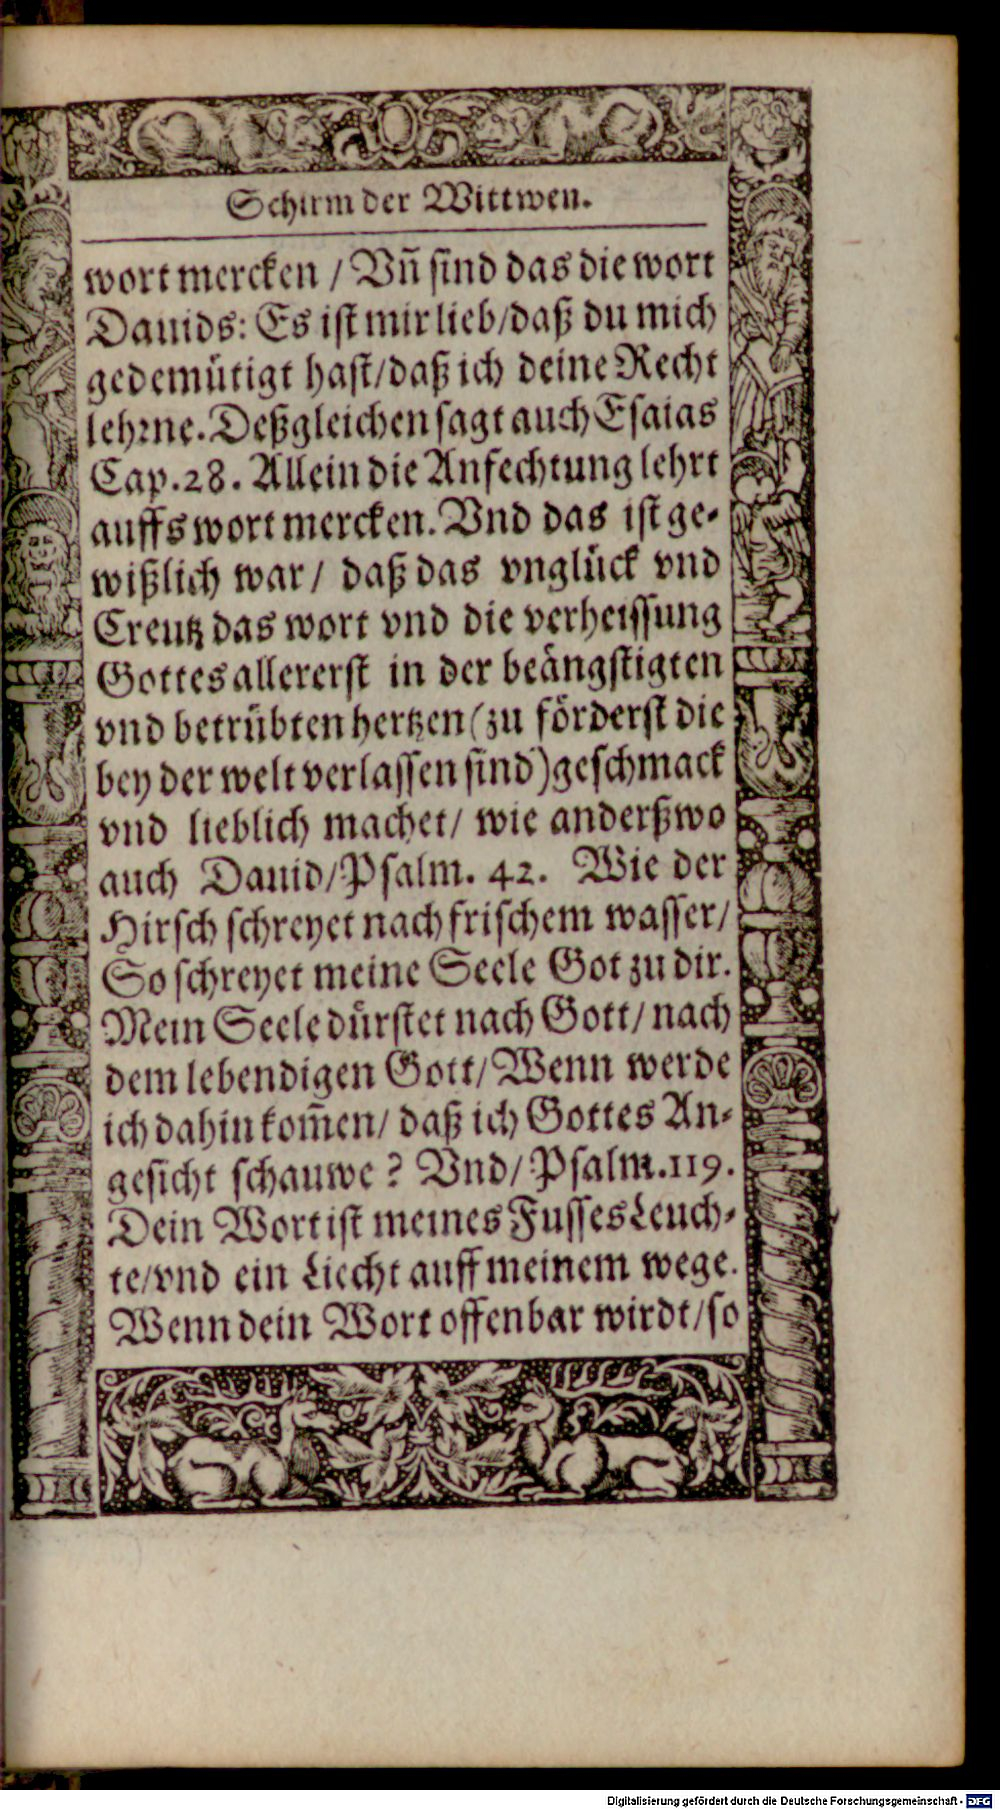 Schirm der Wittwen.
wort mercken / Vñ sind das die wort
Dauids: Es ist mir lieb/daß du mich
gedemütigt hast/daß ich deine Recht
lehrne. Deßgleichen sagt auch Esaias
Cap. 28. Allein die Anfechtung lehrt
auffs wort mercken. Vnd das ist ge-
wißlich war / daß das vnglück vnd
Creutz das wort vnd die verheissung
Gottes allererst in der beängstigten
vnd betrübten hertzen (zu förderst die
bey der welt verlassen sind) geschmack
vnd lieblich machet / wie anderßwo
auch Dauid / Psalm. 42. Wie der
Hirsch schreyet nach frischem wasser /
So schreyet meine Seele Got zu dir.
Mein Seele dürstet nach Gott / nach
dem lebendigen Gott / Wenn werde
ich dahin kom̃en / daß ich Gottes An-
gesicht schauwe? Vnd / Psalm. 119.
Dein Wort ist meines Fusses Leuch-
te / vnd ein Liecht auff meinem wege.
Wenn dein Wort offenbar wirdt / so
Digitalisierung gefördert durch die Deutsche Forschungsgemeinschaft - DFG